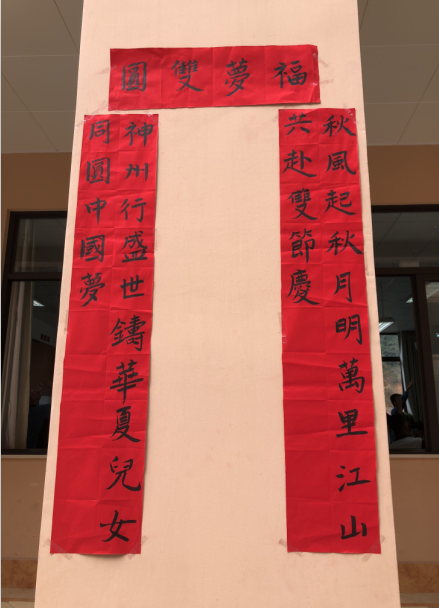 福夢雙圓
秋風起秋月明萬里江山
共赴雙節慶
神州行盛世鑄華夏兒女
同圓中國夢